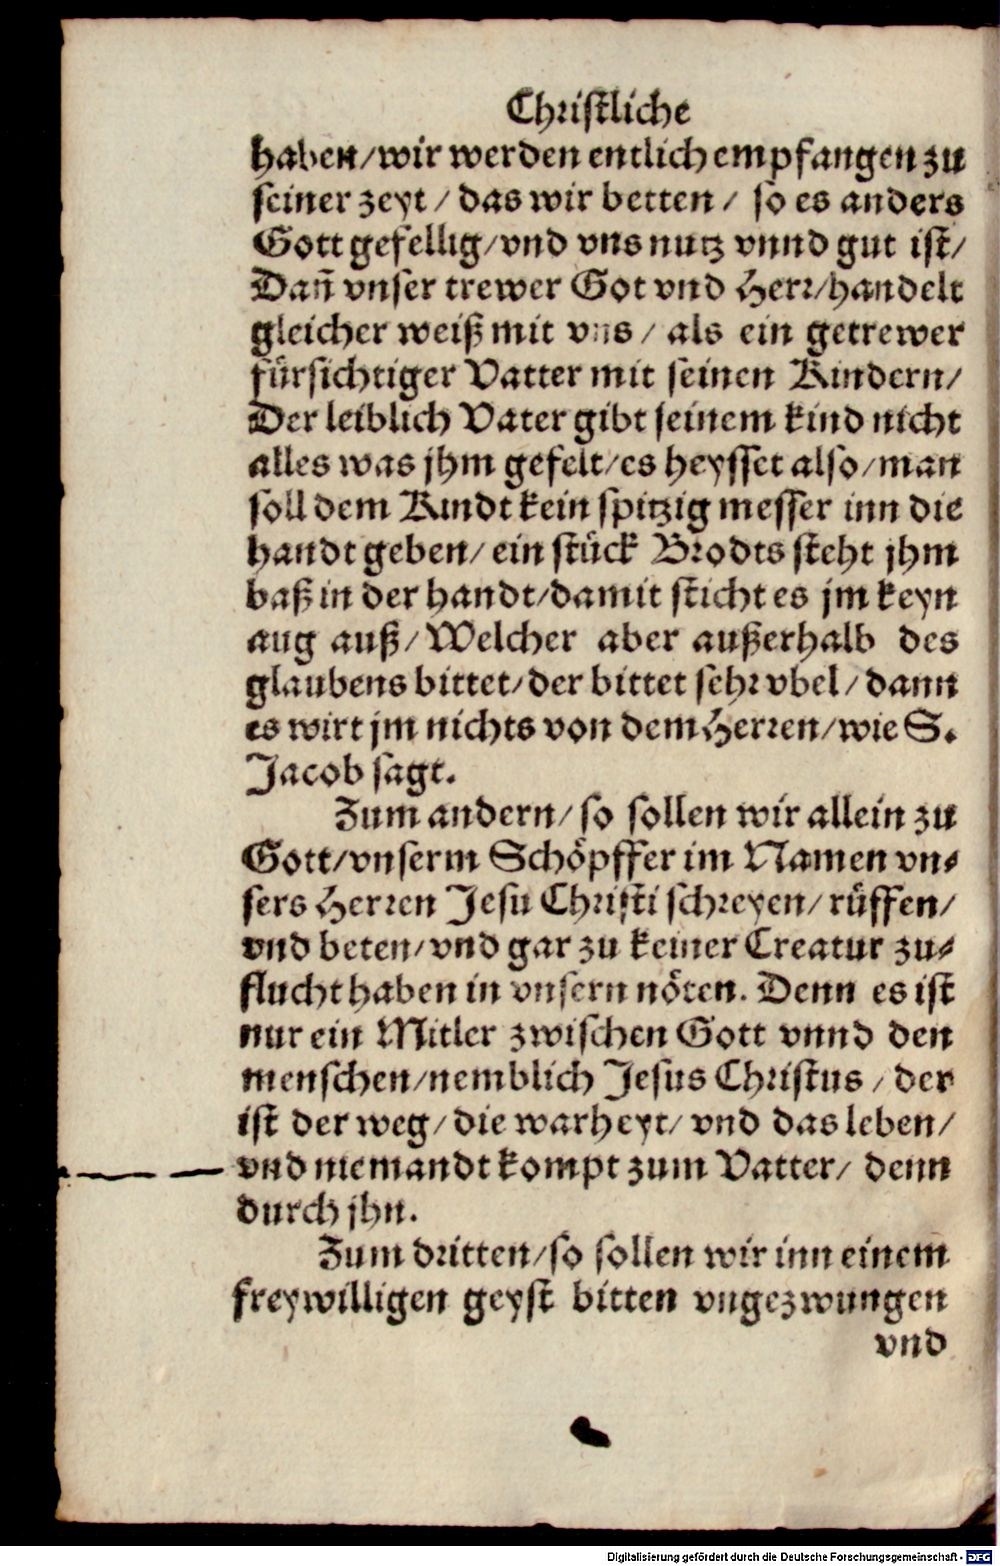 Christliche
haben/wir werden entlich empfangen zu
seiner zeyt / das wir betten / so es anders
Gott gefellig/vnd vns nutz vnnd gut ist/
Dañ vnser trewer Got vnd Herr/handelt
gleicher weiß mit vns / als ein getrewer
fürsichtiger Vatter mit seinen Kindern/
Der leiblich Vater gibt seinem kind nicht
alles was jhm gefelt/es heysset also/man
soll dem Kindt kein spitzig messer inn die
handt geben/ ein stück Brodts steht jhm
baß in der handt/damit sticht es jm keyn
aug auß/Welcher aber außerhalb des
glaubens bittet/der bittet sehr vbel/dann
es wirt jm nichts von dem Herren/wie S.
Jacob sagt.
Zum andern/so sollen wir allein zu
Gott/vnserm Schöpffer im Namen vn-
sers Herren Jesu Christi schreyen/rüffen/
vnd beten/vnd gar zu keiner Creatur zu-
flucht haben in vnsern nöten. Denn es ist
nur ein Mitler zwischen Gott vnnd den
menschen/nemblich Jesus Christus / der
ist der weg/die warheyt/ vnd das leben/
vnd niemandt kompt zum Vatter/ denn
durch jhn.
Zum dritten/so sollen wir inn einem
freywilligen geyst bitten vngezwungen
vnd
Digitalisierung gefördert durch die Deutsche Forschungsgemeinschaft - DFG